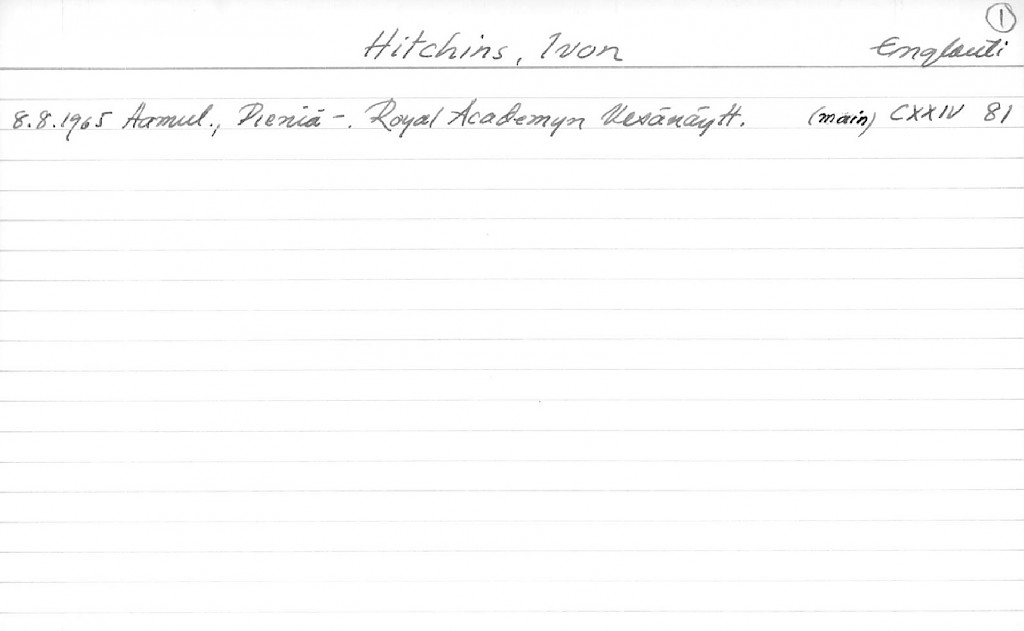 1
Hitchins, Ivon Englanti
8.8.1965 Aamul., Pieniä -. Royal Academyn Kesänäytt. (main) CXXIV 81